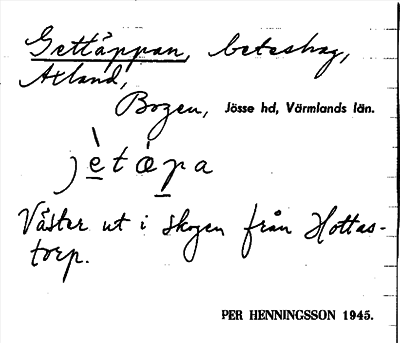 Gettäppan, beteshag,
Atland,
Bogen, Jösse hd, Värmlands län.
jètàpa
Väster ut i skogen från Hottas-
torp.
PER HENNINGSSON 1945.